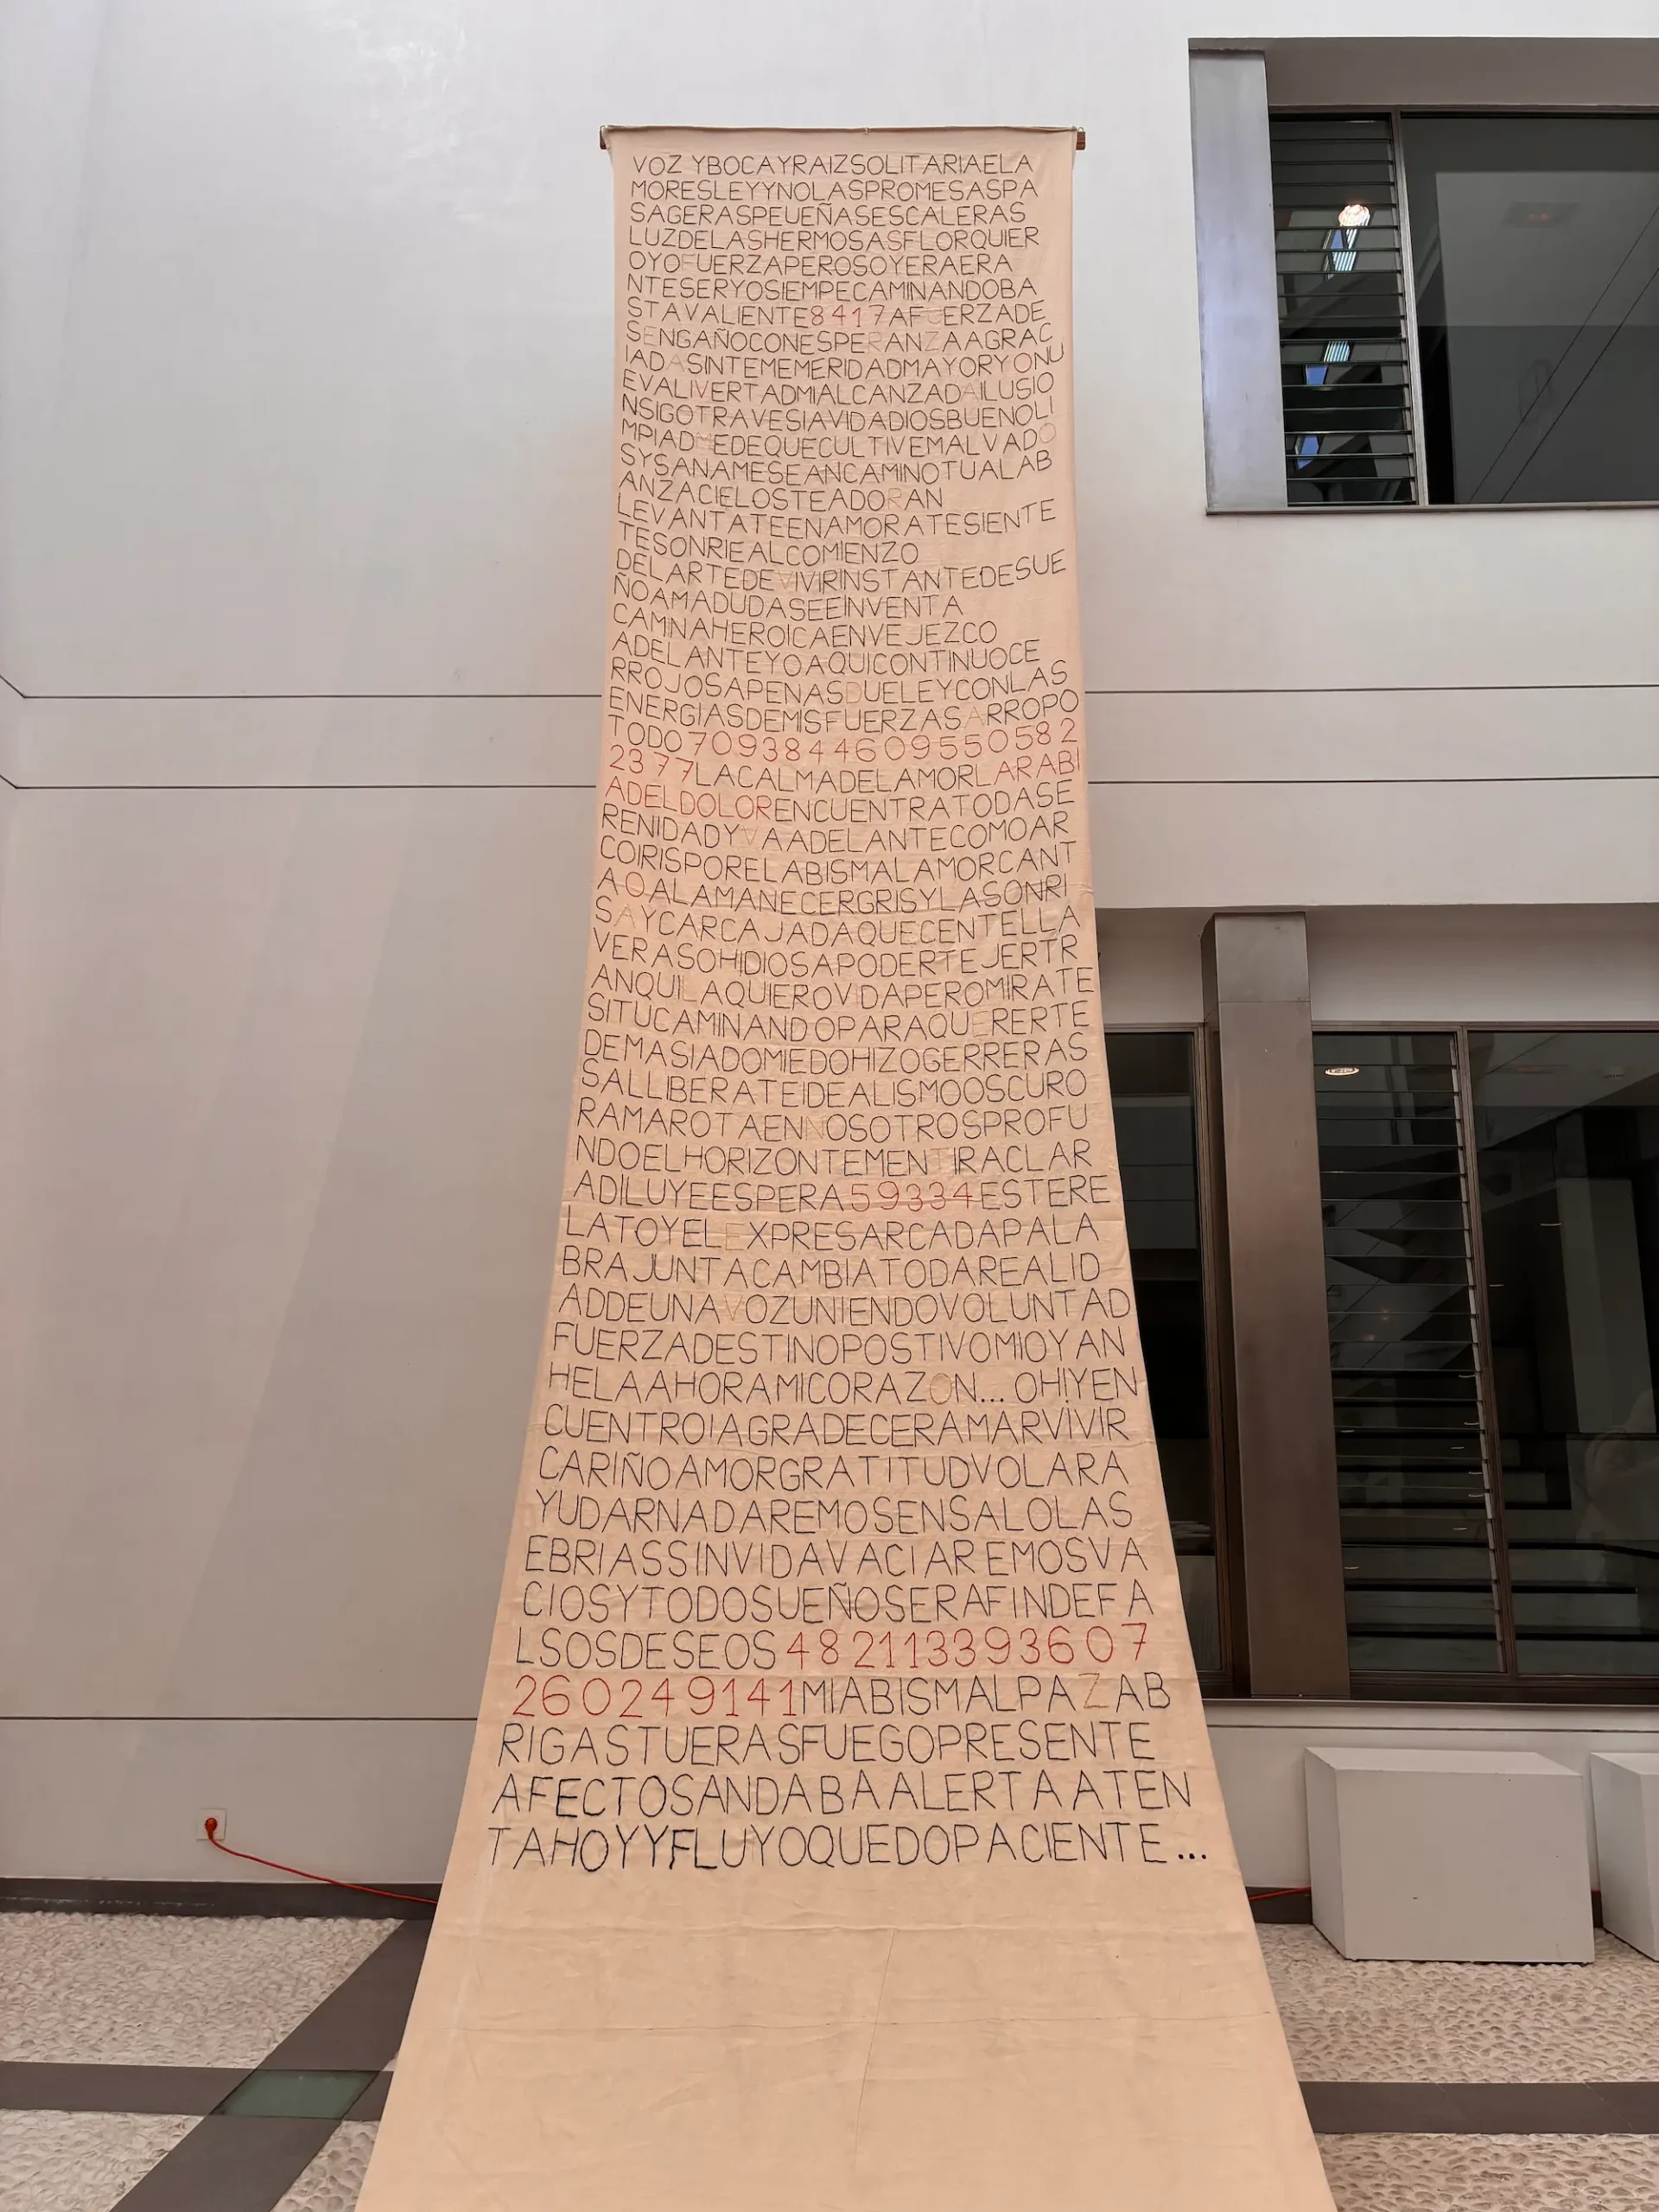 VOZ YBOCAYRAIZSOLITARIAELA
MORESLEYYNOLASPROMESASPA
SAGERASPEUEÑASESCALERAS
LUZDELASHERMOSASFLORQUIER
OYOFUERZAPEROSOYERAERA
NTESERYOSIEMPECAMINANDOBA
STAVALIENTE8417AFUERZADE
SENGAÑOCONESPERANZAAGRAC
IADASINTEMEMERIDADMAYORYONU
EVALIVERTADMIALCANZADAILUSIO
NSIGOTRAVESIAVIDADIOSBUENOLI
MPIADMEDEQUECULTIVEMALVADO
SYSANAMESEANCAMINOTUALAB
ANZACIELOSTEADORAN
LEVANTATEENAMORATESIENTE
TESONRIEALCOMIENZO
DELARTEDEVIVIRINSTANTEDESUE
ÑOAMADUDASEEINVENTA
CAMINAHEROICAENVEJEZCO
ADELANTEYOAQUICONTINUOCE
RROJOSAPENASDUELEYCONLAS
ENERGIASDEMISFUERZASARROPO
TODO709384460955058 2
2377LACALMADELAMORLARABI
ADELDOLORENCUENTRATODASE
RENIDADYVAADELANTECOMOAR
COIRISPORELABISMALAMORCANT
AOALAMANECERGRISYLASONRI
SAYCARCAJADAQUECENTELLA
VERASOHIDIOSAPODERTEJERTR
ANQUILAQUIEROVIDAPEROMIRATE
SITUCAMINANDOPARAQUERERTE
DEMASIADOMIEDOHIZOGERRERAS
SALLIBERATEIDEALISMOOSCURO
RAMAROTAENNOSOTROSPROFU
NDOELHORIZONTEMENTIRACLAR
ADILUYEESPERA59334ESTERE
LATOYELEXPRESARCADAPALA
BRAJUNTACAMBIATODAREALID
ADDEUNAVOZUNIENDOVOLUNTAD
FUERZADESTINOPOSTIVOMIOYAN
HELAAHORAMICORAZON... OH!YEN
CUENTROIAGRADECERAMARVIVIR
CARIÑOAMORGRATITUDVOLARA
YUDARNADAREMOSENSALOLAS
EBRIASSINVIDAVACIAREMOSVA
CIOSYTODOSUEÑOSERAFINDEFA
LSOSDESEOS482113393607
260249141MIABISMALPAZAB
RIGASTUERASFUEGOPRESENTE
AFECTOSANDABAALERTAATEN
TAHOYYFLUYOQUEDOPACIENTE...